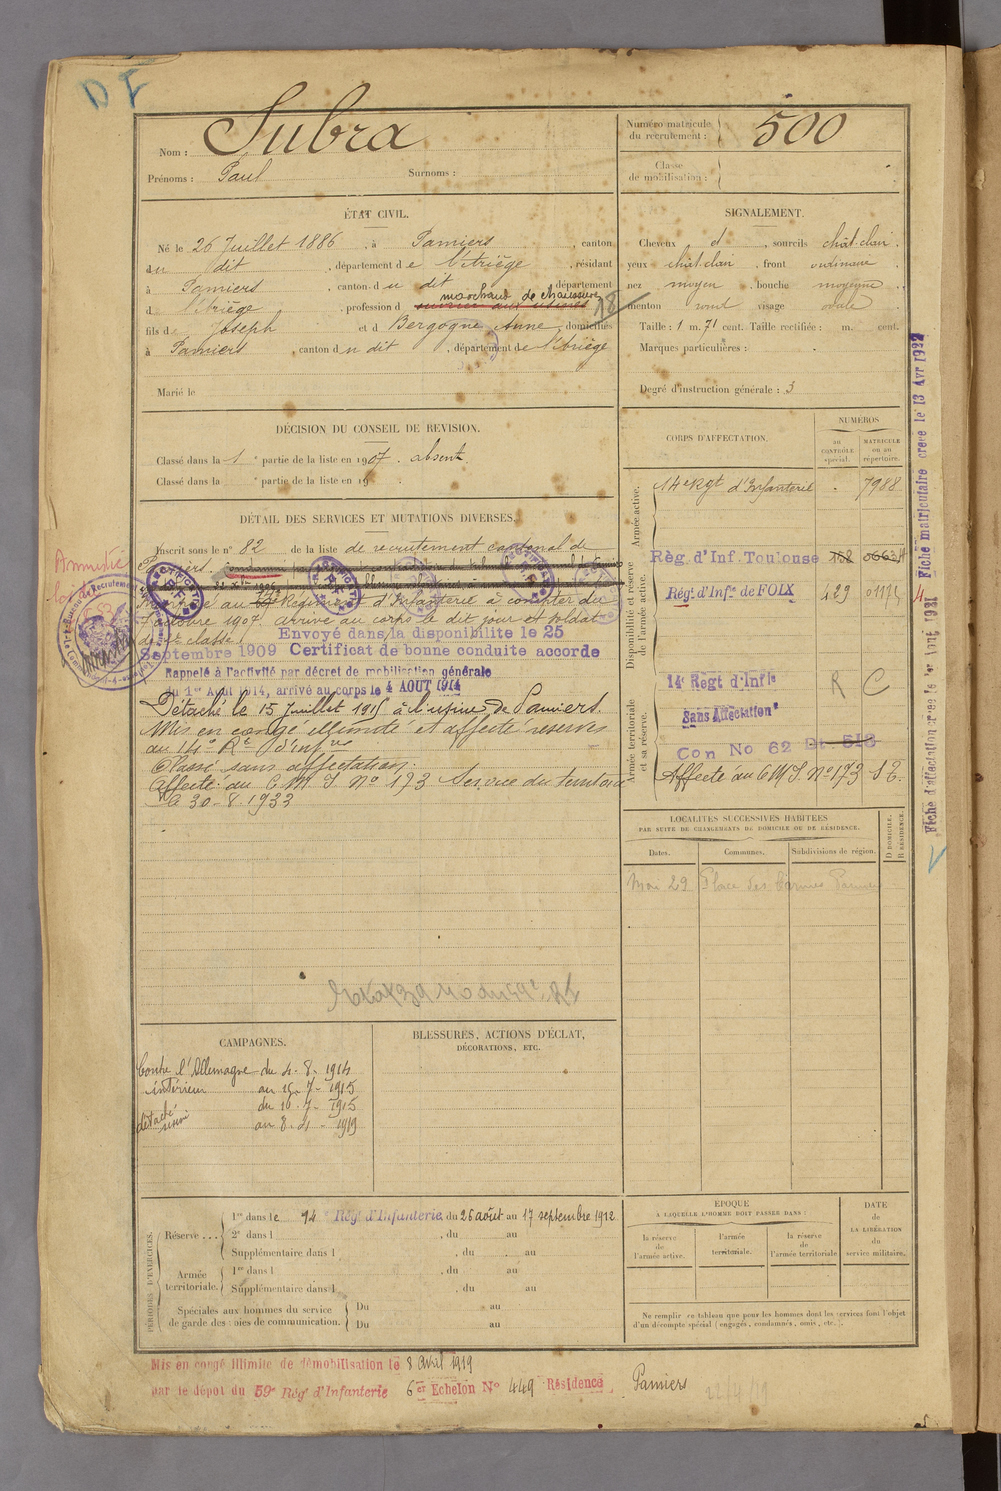 D F
Nom : Subra
Prénoms : Paul Surnoms :
Numéro matricule du recrutement : 500
Classe de mobilisation :
ÉTAT CIVIL.
Né le 26 Juillet 1886, à Pamiers, canton
du dit, département de l'Ariège, résidant
à Pamiers, canton du dit, département
d l'Ariège, profession d marchand de chaussures 18
fils de Joseph et d Bergogne Anne, domiciliés
à Pamiers, canton du dit, département de l'Ariège
Marié le
SIGNALEMENT.
Cheveux d, sourcils chât. clair.
yeux chât. clair, front ordinaire
nez moyen, bouche moyenne
menton rond visage ovale
Taille : 1 m. 71 cent. Taille rectifiée : m. cent.
Marques particulières :
Degré d'instruction générale : 3
DÉCISION DU CONSEIL DE REVISION.
Classé dans la 1e partie de la liste en 1907. absent
Classé dans la e partie de la liste en 19
DÉTAIL DES SERVICES ET MUTATIONS DIVERSES.
Inscrit sous le n° 82 de la liste de recrutement cantonal de
Pamiers.
Amnistié
RECTIFICATION R.F.
au Régiment d'Infanterie à compter du
7 octobre 1907. arrivé au corps le dit jour et soldat
de 2e classe. Envoyé dans la disponibilité le 25
Septembre 1909 Certificat de bonne conduite accordé
Rappelé à l'activité par décret de mobilisation générale
du 1er Août 1914, arrivé au corps le 4 AOUT 1914
Détaché le 15 Juillet 1915 à l'usine de Pamiers.
Mis en congé illimité et affecté réserves
au 14e Rt d'infrie
Classé sans affectation.
Affecté au C.M.I. N° 173 Service du territoire
le 30-8-1933
CORPS D'AFFECTATION.
NUMÉROS
au CONTRÔLE spécial.
MATRICULE ou au répertoire.
Armée active.
14e Rgt d'Infanterie . 7988
Disponibilité et réserve de l'armée active.
Règ. d'Inf. Toulouse 158
Régt d'Infie de FOIX 429 01175
Armée territoriale et sa réserve.
14e Regt d'Infie R C
Sans Affectation
Con No 62 Dt. 518
Affecté au C.M.I. N° 173 S.E.
Fiche d'affectation créée le 1er Aout 1931 Fiche matriculaire créée le 13 Avr 1922
4
LOCALITÉS SUCCESSIVES HABITÉES
PAR SUITE DE CHANGEMENTS DE DOMICILE OU DE RÉSIDENCE.
Dates. Communes. Subdivisions de région. D DOMICILE. R RÉSIDENCE.
Mai 29 Place des Carmes Pamiers
CAMPAGNES.
Contre l'Allemagne du 4-8-1914
intérieur au 15-7-1915
détaché usine du 16-7-1915
au 8-4-1919
BLESSURES, ACTIONS D'ÉCLAT,
DÉCORATIONS, ETC.
PÉRIODES D'EXERCICES.
Réserve ... 1re dans le 14e Rég. d'Infanterie, du 26 août au 17 septembre 1912
2e dans l , du au
Supplémentaire dans l , du au
Armée territoriale. 1re dans l , du au
Supplémentaire dans l , du au
Spéciales aux hommes du service de garde des voies de communication. Du au
Du au
ÉPOQUE
À LAQUELLE L'HOMME DOIT PASSER DANS :
la réserve de l'armée active.
l'armée territoriale.
la réserve de l'armée territoriale
DATE de LA LIBÉRATION du service militaire.
Ne remplir ce tableau que pour les hommes dont les services font l'objet
d'un décompte spécial (engagés, condamnés, omis, etc.).
Mis en congé illimité de démobilisation le 8 Avril 1919
par le dépôt du 59e Rég. d'Infanterie 6er Echelon N° 449 Résidence Pamiers
22/4/19